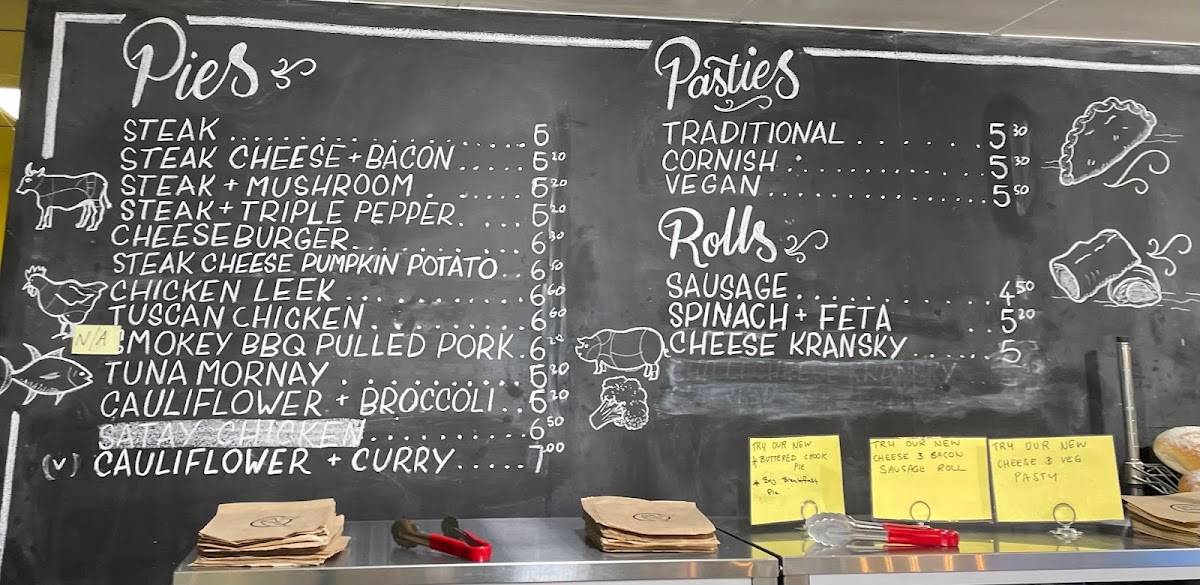 Pies
STEAK .................... 5
STEAK CHEESE + BACON .... 5 20
STEAK + MUSHROOM . .... 5 20
STEAK + TRIPLE PEPPER. .... 5 20
CHEESEBURGER....... 6 30
STEAK CHEESE PUMPKIN POTATO.. 6 50
CHICKEN LEEK ........... 6 60
TUSCAN CHICKEN......... 6 60
N/A SMOKEY BBQ PULLED PORK. 6
TUNA MORNAY .......... 5 20
CAULIFLOWER + BROCCOLI .. 6 20
SATAY CHICKEN ........ 6 50
(V) CAULIFLOWER + CURRY..... 7 00
Pasties
TRADITIONAL ........ 5 30
CORNISH ............ 5 30
VEGAN ............ 5 50
Rolls
SAUSAGE ........... 4 50
SPINACH + FETA .. 5 20
CHEESE KRANSKY ..... 5
TRY OUR NEW
* BUTTERED CHOOK
PIE
* Big Breakfast
Pie
TRY OUR NEW
CHEESE & BACON
SAUSAGE ROLL
TRY OUR NEW
CHEESE & VEG
PASTY